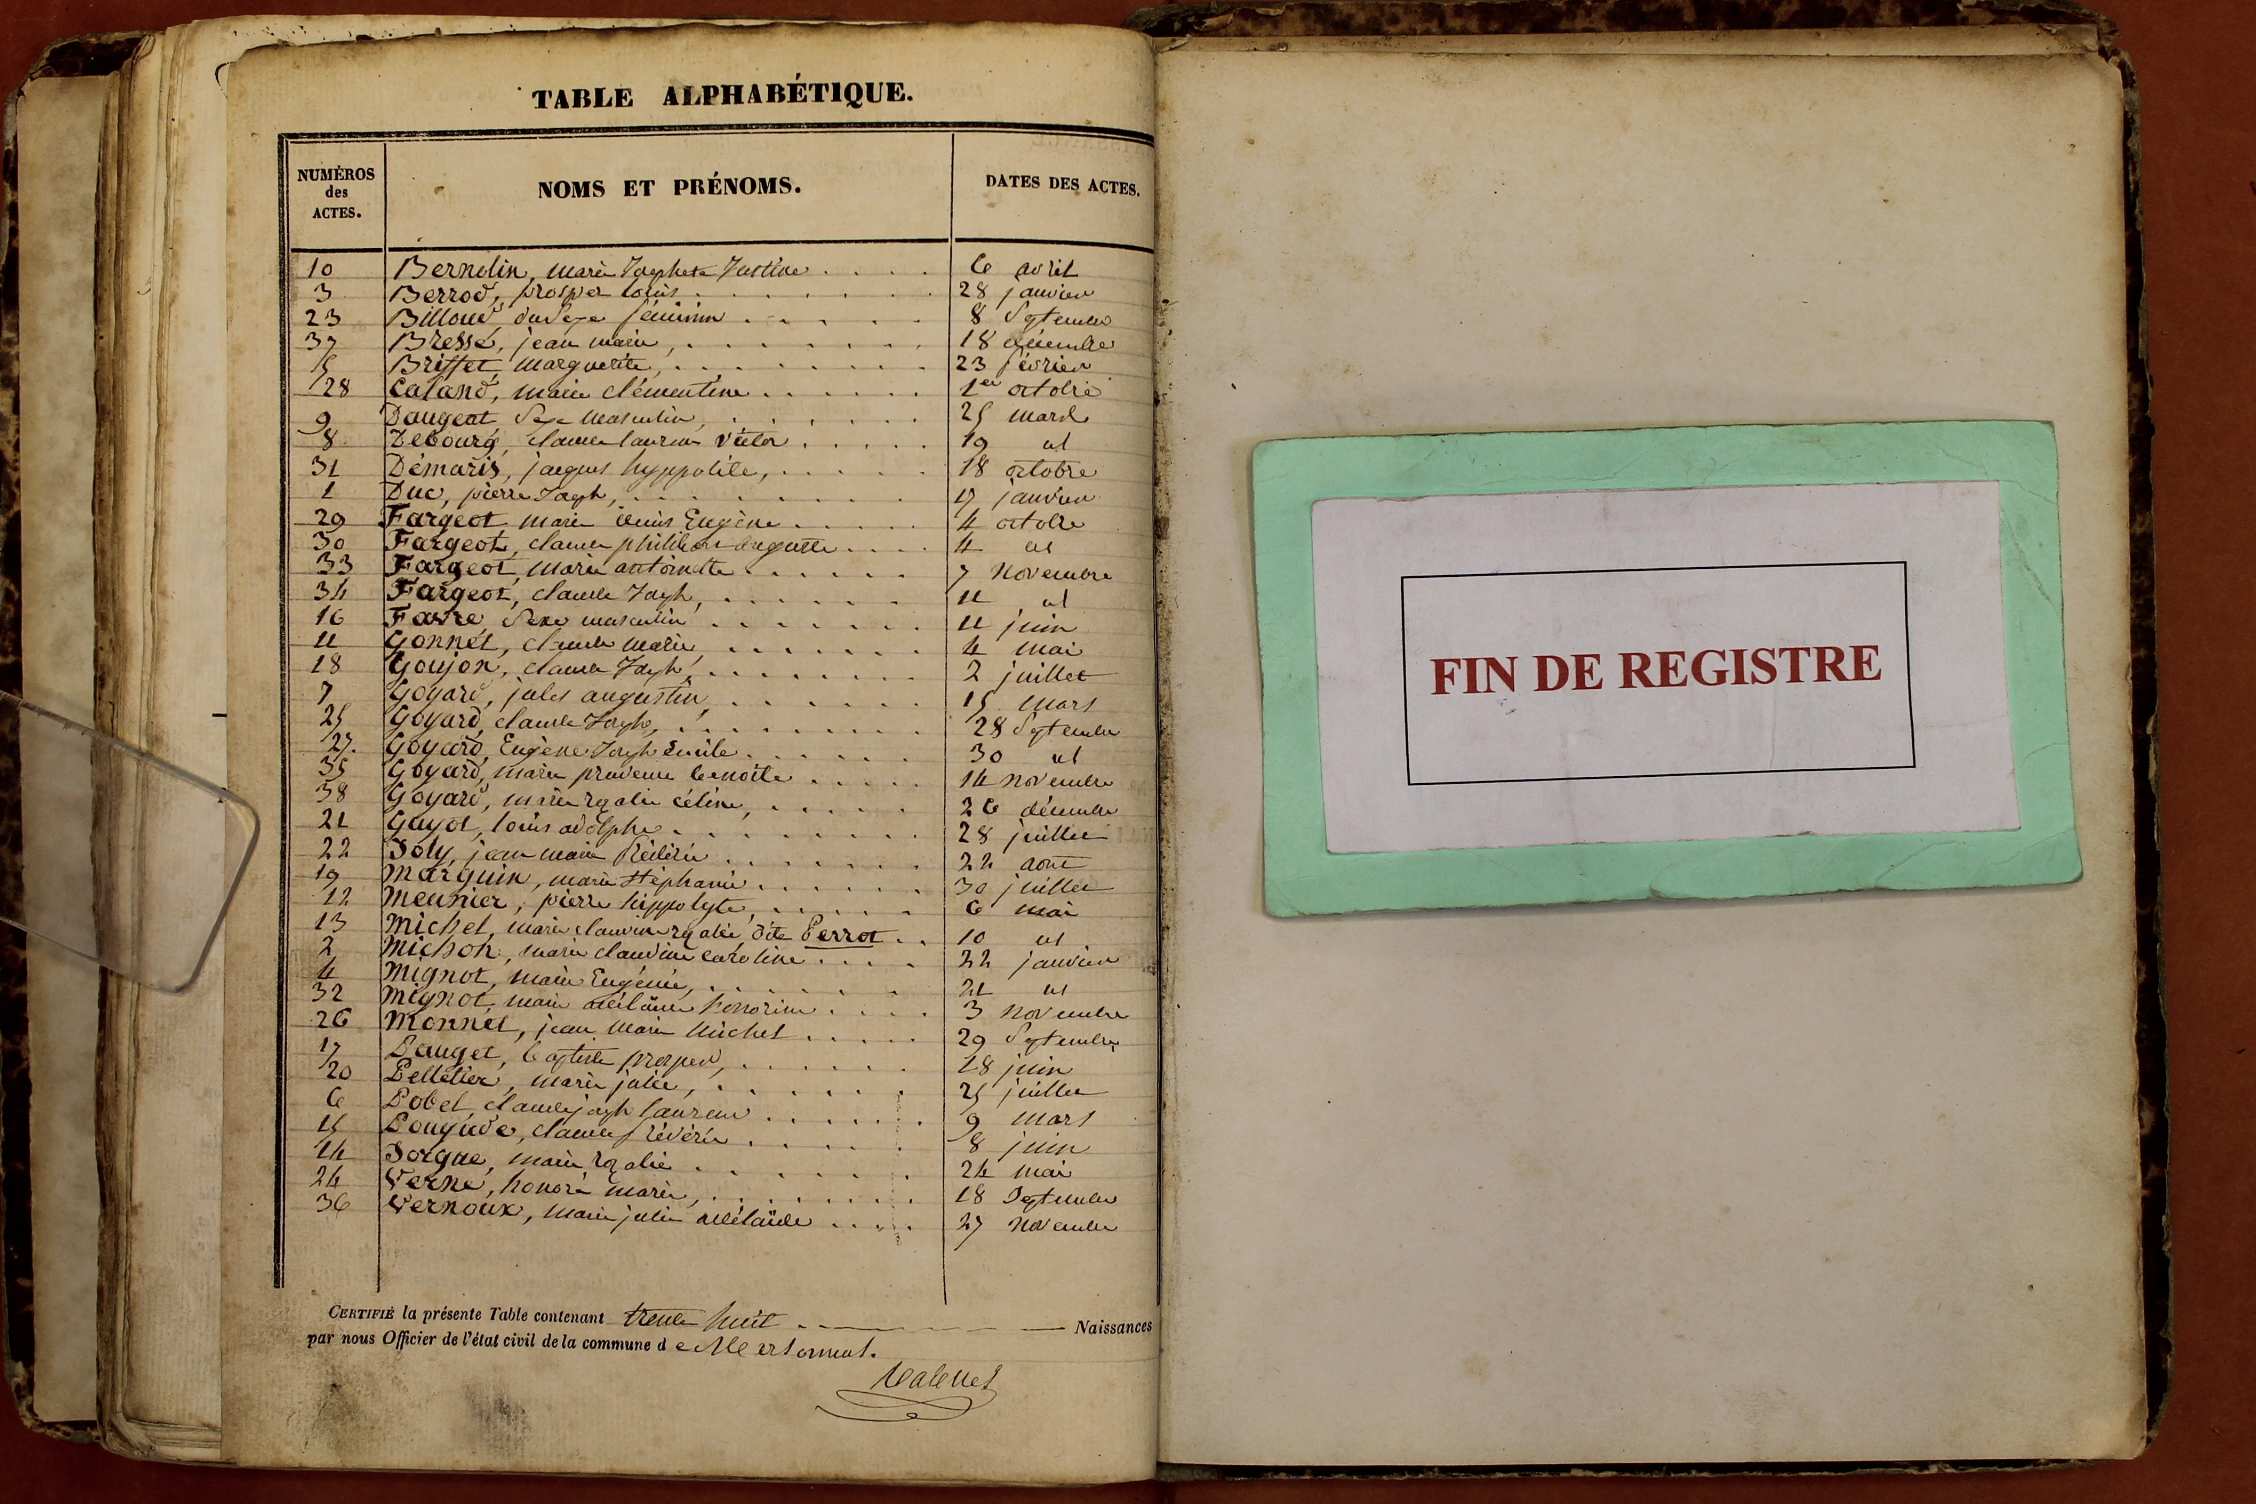 TABLE ALPHABÉTIQUE.
NUMÉROS des ACTES.
NOMS ET PRÉNOMS.
DATES DES ACTES.
10 Bernolin, marie Josephete Justine . . . . 6 avril
3 Berrod, prosper louis . . . . 28 janvier
23 Billoud, du Sexe féminin . . . . 8 Septembre
37 Bressé, jean marie, . . . . 18 décembre
5 Briffet, Marguerite, . . . . 23 février
28 Caland, marie clémentine . . . . 1er octobre
9 Daugeat Sexe Masculin, . . . . 25 mars
8 Debourg, claude laurent victor . . . . 19 id
31 Démaris, jacques hyppolite, . . . . 18 octobre
1 Duc, pierre Joseph, . . . . 17 janvier
29 Fargeot marie Eugène . . . . 4 octobre
30 Fargeot, claude philibert auguste . . . . 4 id
33 Fargeot, marie antoinette . . . . 7 Novembre
34 Fargeot, claude Joseph, . . . . 11 id
16 Favre, Sexe masculin . . . . 11 juin
11 Gonnet, claude marie, . . . . 4 mai
18 Goujon, claude Joseph, . . . . 2 juillet
7 Goyard, jules augustin, . . . . 15 mars
25 Goyard, claude Joseph, . . . . 28 Septembre
27. Goyard, Eugène Joseph Emile . . . . 30 id
35 Goyard, marie prudence benoite . . . . 14 novembre
38 Goyard, marie rosalie céline, . . . . 26 décembre
21 Guyot, louis adolphe . . . . 28 juillet
22 Joly, jean marie . . . . 22 août
19 Marguin, marie Stéphanie . . . . 30 juillet
12 Meunier, pierre hippolyte, . . . . 6 mai
13 Michel, marie claudine rosalie, dite Perrot . . 10 id
2 Michon, marie claudine caroline . . . . 22 janvier
4 Mignot, marie Eugénie, . . . . 21 id
32 Mignot, marie adélaïde honorine . . . . 3 novembre
26 Monnet, jean Marie Michel . . . . 29 Septembre
17 Pauget, baptiste prosper, . . . . 18 juin
20 Pelletier, marie julie, . . . . 25 juillet
6 Pobel, claude joseph laurent . . . . 9 mars
15 Ponguide, claude frédéric . . . . 8 juin
14 Sorgue, marie rosalie . . . . 24 mai
24 Verne, honoré marie, . . . . 18 Septembre
36 Vernoux, marie julie adélaïde . . . . 27 novembre
CERTIFIÉ la présente Table contenant trente huit Naissances
par nous Officier de l'état civil de la commune d
FIN DE REGISTRE